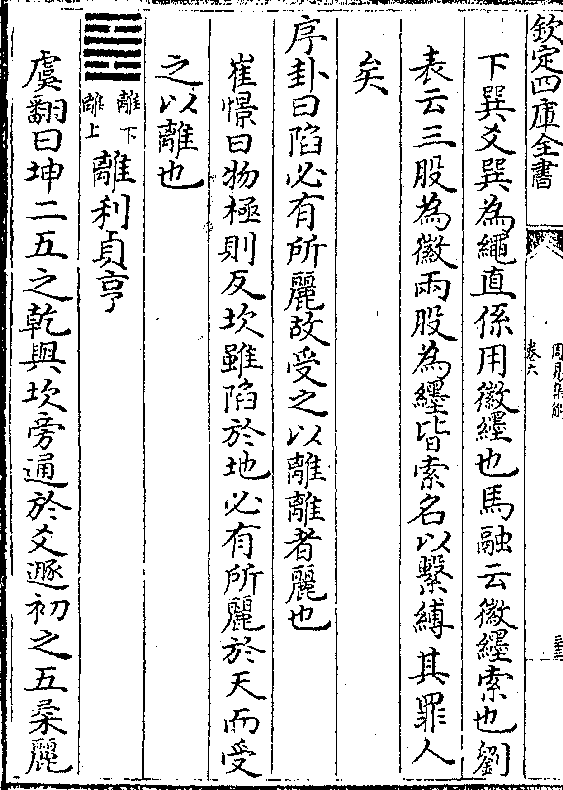 欽定四庫全書
周易集解
卷六
下巽爻巽為繩直係用徽纆也馬融云徽纆索也劉
表云三股為徽兩股為纆皆索名以繫縛其罪人
矣
序卦曰陷必有所麗故受之以離離者麗也
崔憬曰物極則反坎雖陷於地必有所麗於天而受
之以離也
離下
離上
離利貞亨
虞翻曰坤二五之乾與坎旁通於爻遯初之五柔麗